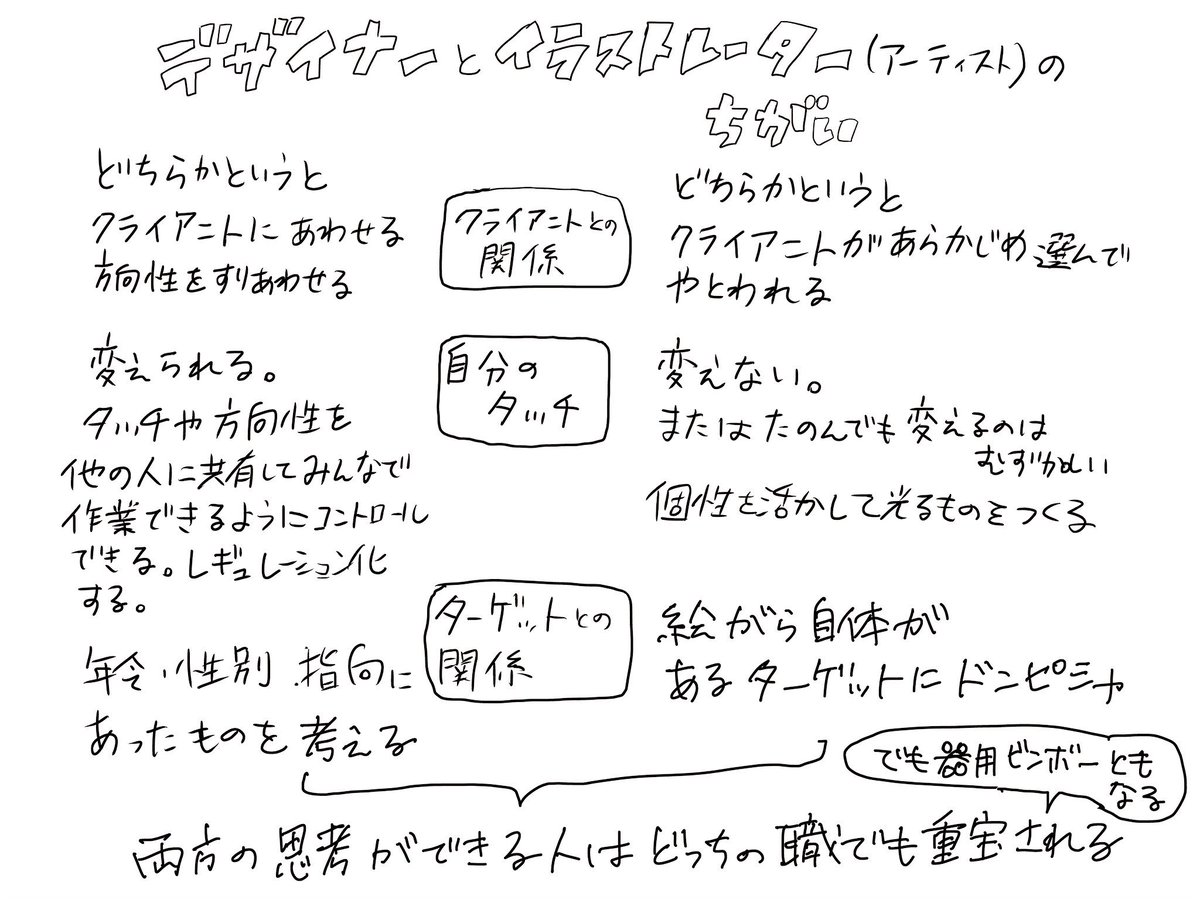 デザイナーとイラストレーター(アーティスト)の
ちがい
どちらかというと
クライアントにあわせる
方向性をすりあわせる
クライアントとの
関係
どちらかというと
クライアントがあらかじめ選んで
やとわれる
変えられる。
タッチや方向性を
他の人に共有してみんなで
作業できるようにコントロール
できる。レギュレーション化
する。
自分の
タッチ
変えない。
またはたのんでも変えるのは
むずかしい
個性を活かして光るものをつくる
年令・性別 指向に
あったものを考える
ターゲットとの
関係
絵がら自体が
あるターゲットにドンピシャ
でも器用ビンボーとも
なる
両方の思考ができる人はどっちの職でも重宝される